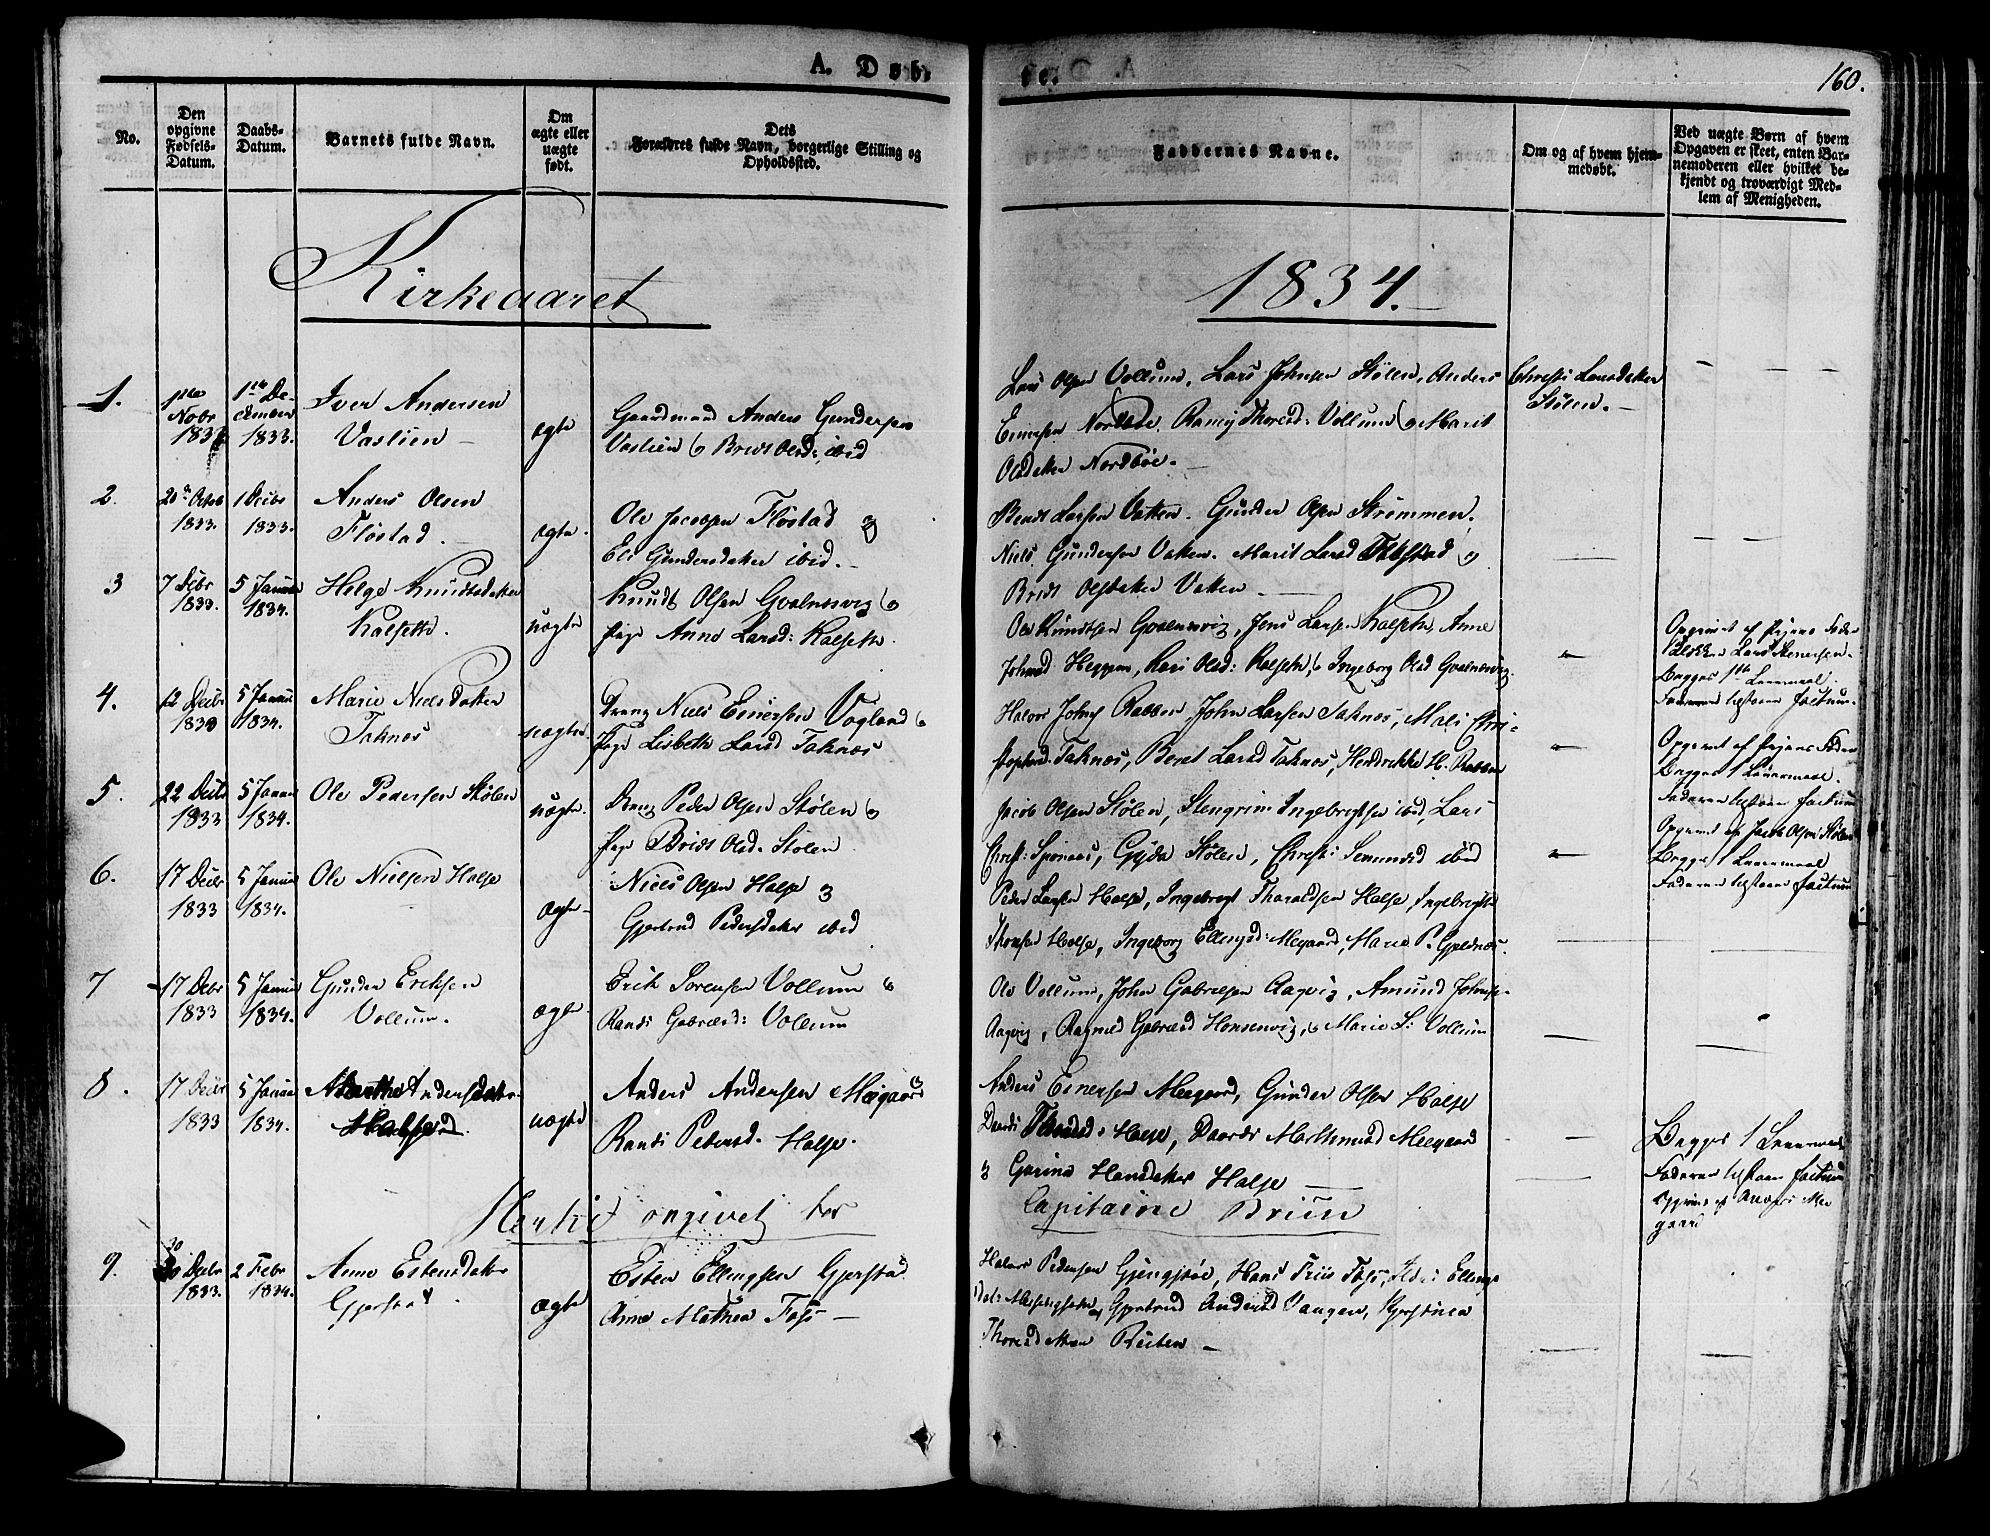 A. Døb-
te.
160.
No.
Den opgivne Fødsels-Datum.
Daabs-Datum.
Barnets fulde Navn.
Om ægte eller uægte født.
Dets Forældres fulde Navn, borgerlige Stilling og Opholdssted.
Faddernes Navne.
Om og af hvem hjemmedøbt.
Ved uægte Børn af hvem Opgaven er skeet, enten Barnemoderen eller hvilket bekjendt og troværdigt Medlem af Menigheden.
Kirkeaaret
1834.
1.
Nobr
1833
1ste De-
cember
1833.
Iver Andersen
Vaslien
ægte
Gaardmand Anders Gundersen
Vaslien & Bridt Olsd: ibid
Lars Olsen Vollum, Lars Johnsen Stølen, Anders
Nordbøe, Thoresd: Vollum & Marit
Olsdatter Nordbøe.
Christi Larsdatter
Stølen.
2.
20de Octob
1833.
1 Decbr
1833.
Anders Olsen
Fløstad.
ægte.
Ole Jacobsen Fløstad &
Eli Gundersdatter ibid.
Bendt Larsen Vatten. Gunder Olsen Strømmen,
Niels Gundersen Vatten. Marit Larsd &
Bridt Olsdatter Vatten
3
7 Debr
1833.
5 Januar
1834.
Helge Knudtsdatter
Kalseth.
uægte
Knudt Olsen Gvalnesvig &
Pige Anne Larsd: Kalseth.
Ole Knudtsen Gvalnesvig, Jens Larsen Kalseth, Anne
Johnsd Heggem, Kari Olsd: Kalseth, & Ingeborg Olsd Gvalnesvig.
Opgivet af Pigens Fader
Lars
Begges 1ste Leiermaal.
Faderen tilstaar Factum.
4.
12 Decbr
1833
5 Januar
1834.
Marie Nielsdatter
Taknes
uægte.
Dreng Niels Einersen Vogland &
Pige Lisbeth Larsd Taknes
Halvor Johns Rabben, John Larsen Taknes, Mali Chri-
stophersd Taknes, Beret Larsd Taknes, Hendrikke H. Rabben
Opgivet af Pigens Fader
Begges 1 Leiermaal.
Faderen tilstaar Factum
5.
22 Decbr
1833
5 Januar
1834.
Ole Pedersen Stølen
uægte.
Dreng Peder Olsen Stølen &
Pige Bridt Olsd. Stølen
Jacob Olsen Stølen, Stengrim Ingebrigtsen ibid, Lars
Christ: Spjenaas, Gyda Stølen, Christi ibid
Opgivet af Jacob Olsen Stølen
Begges 1 Leiermaal
Faderen tilstaar Factum
6.
17 Decbr
1833
5 Januar
1834.
Ole Nielsen Halse
ægte
Niels Olsen Halse &
Gjertrud Pedersdatter ibid
Peder Larsen Halse, Ingebrigt Tharaldsen Halse, Ingebrigt
Halse, Ingeborg Ellingsd: Megaard, Marie P.
7
17 Debr
1833
5 Januar
1834.
Gunder Eriksen
Vollum.
ægte.
Erik Sørensen Vollum &
Randi Gabrielsd: Vollum
Ole Vollum, John Gabrielsen Aagvig, Amund Johns-
Aagvig, Ragnild Gabrielsd Honsenvig, & Marie S: Vollum
8.
17 Decbr
1833
5 Januar
1834.
Marthe Andersdatter
uægte
Anders Andersen Megaard &
Randi Pedersd. Halse.
Anders Einersen Megaard, Gunder Olsen Halse
Halse, Megaard
& Gurine Hansdatter Halse
Begges 1 Leiermaal
Faderen tilstaar Factum
Opgivet af Anders Me-
gaard
angivet for
Capitaine Brun
9.
30 Decbr
1833.
2 Febr
1834.
Anne Estensdatter
Gjerstad.
Ægte
Esten Ellingsen Gjerstad
Anne Mathea Foss
Halvor Pedersen Gjengstøe, Hans Friis Foss,
Gjertrud Andersd Vaagen,